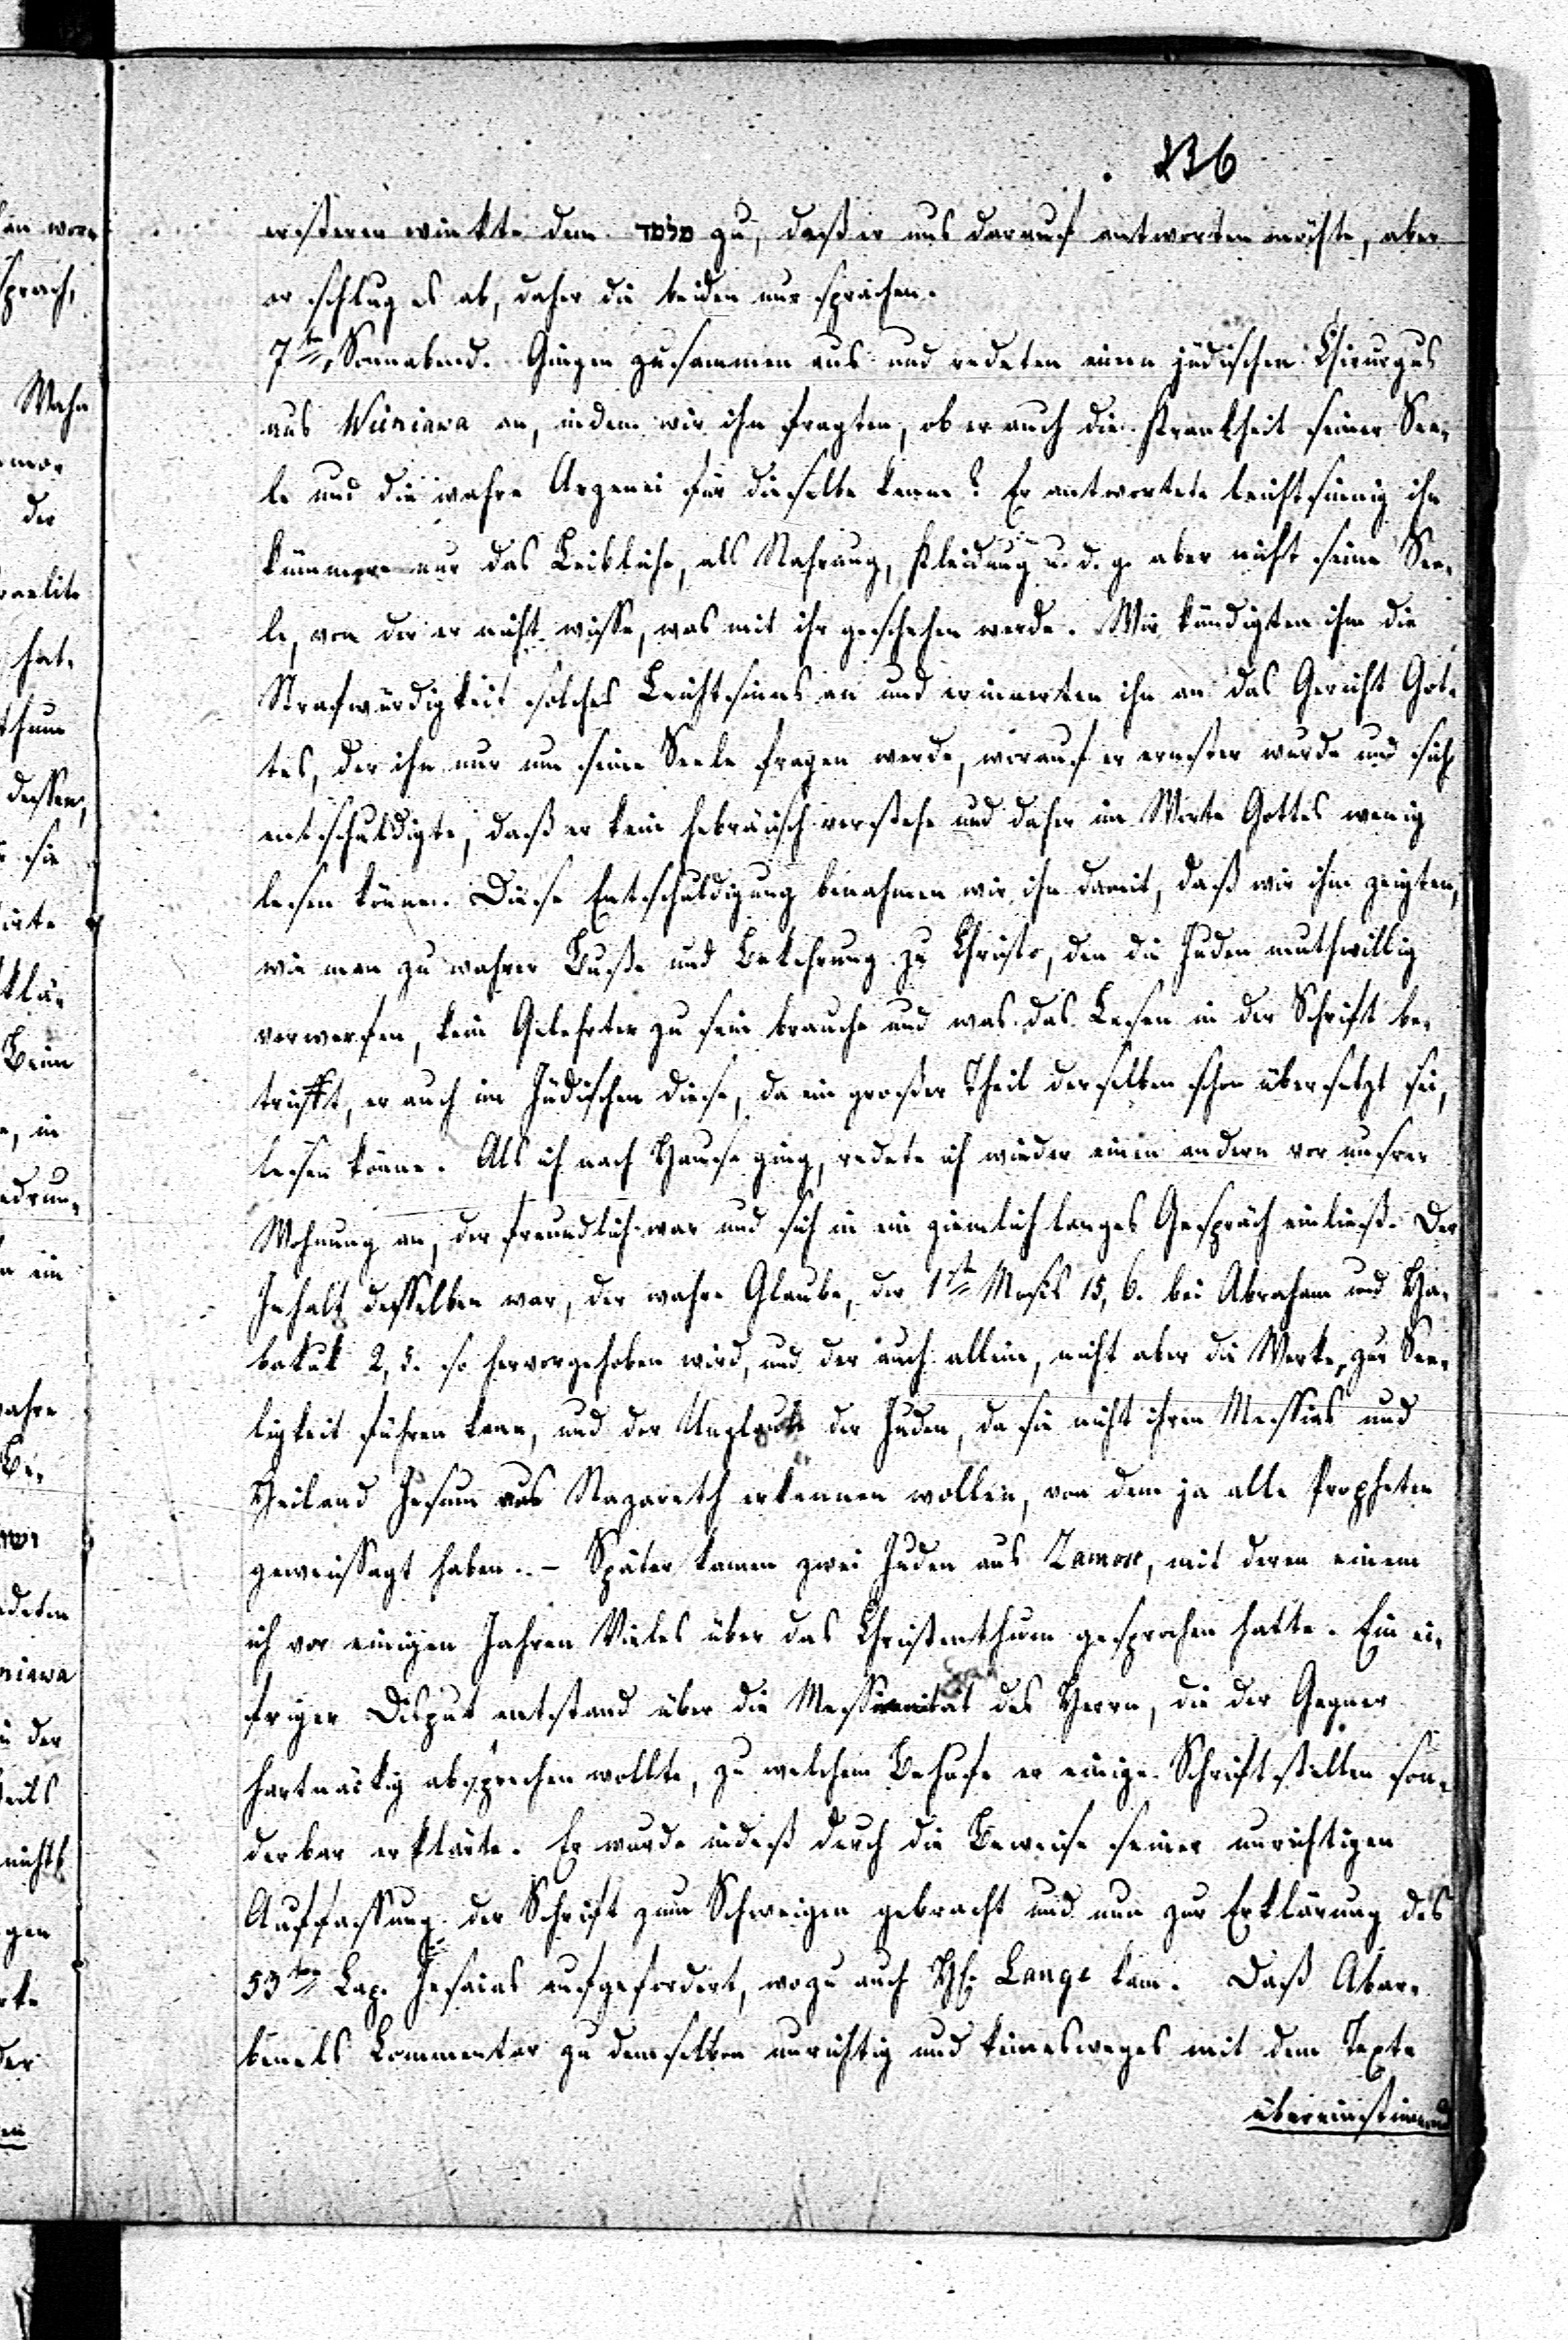 136
ersterer winkte dem מלמד zu, daß er uns darauf antworten möchte, aber
er schlug es ab, daher die beiden nur sprachen.
7ten, Sonnabend. Gingen zusammen aus und redeten einen jüdischen Chirurgus
aus Wieniawa an, indem wir ihn fragten, ob er auch die Krankheit seiner See,
le und die wahre Arzenei für dieselbe kenne? Er antwortete leichtsinnig ihn
kümmere nur das Leibliche, als Nahrung, Kleidung u. d. g. aber nicht seine See,
le, von der er nicht wisse, was mit ihr geschehen werde. Wir kündigten ihm die
Strafwürdigkeit solches Leichtsinns an und erinnerten ihn an das Gericht Got,
tes, der ihn nur um seine Seele fragen werde, worauf er ernster wurde und sich
entschuldigte, daß er kein hebräisch verstehe und daher im Worte Gottes wenig
lesen könne. Diese Entschuldigung benahmen wir ihm damit, daß wir ihm zeigten,
wie man zu wahrer Buße und Bekehrung zu Christo, den die Juden muthwillig
verwerfen, kein Gelehrter zu sein brauche und was das Lesen in der Schrift be,
trifft, er auch im Jüdischen diese, da ein großer Theil derselben schon übersetzt sei,
lesen könne. Als ich nach Hause ging, redete ich wieder einen andern vor unsrer
Wohnung an, der freundlich war und sich in ein ziemlich langes Gespräch einließ. Der
Inhalt desselben war, der wahre Glaube, der 1ste Mosis 15, 6. bei Abraham und Ha,
bakuk 2, 5. so hervorgehoben wird, und der auch allein, nicht aber die Werke, zur See,
ligkeit führen kann, und der Unglaube der Juden, da sie nicht ihren Messias und
Heiland Jesum aus Nazareth erkennen wollen, von dem ja alle Propheten
geweissagt haben. – Später kamen zwei Juden aus Zamosc, mit deren einem
ich vor einigen Jahren Vieles über das Christenthum gesprochen hatte. Ein ei,
friger Disput entstand über die Messianität des Herrn, die der Gegner
hartnäckig absprechen wollte, zu welchem Behufe er einige Schriftstellen son,
derbar erklärte. Er wurde indeß durch die Beweise seiner unrichtigen
Auffassung der Schrift zum Schweigen gebracht und nun zur Erklärung des
53ten Cap. Jesaias aufgefordert, wozu auch H. Lange kam. Daß Abar,
benels Commentar zu demselben unrichtig und keinesweges mit dem Texte
übereinstimmend